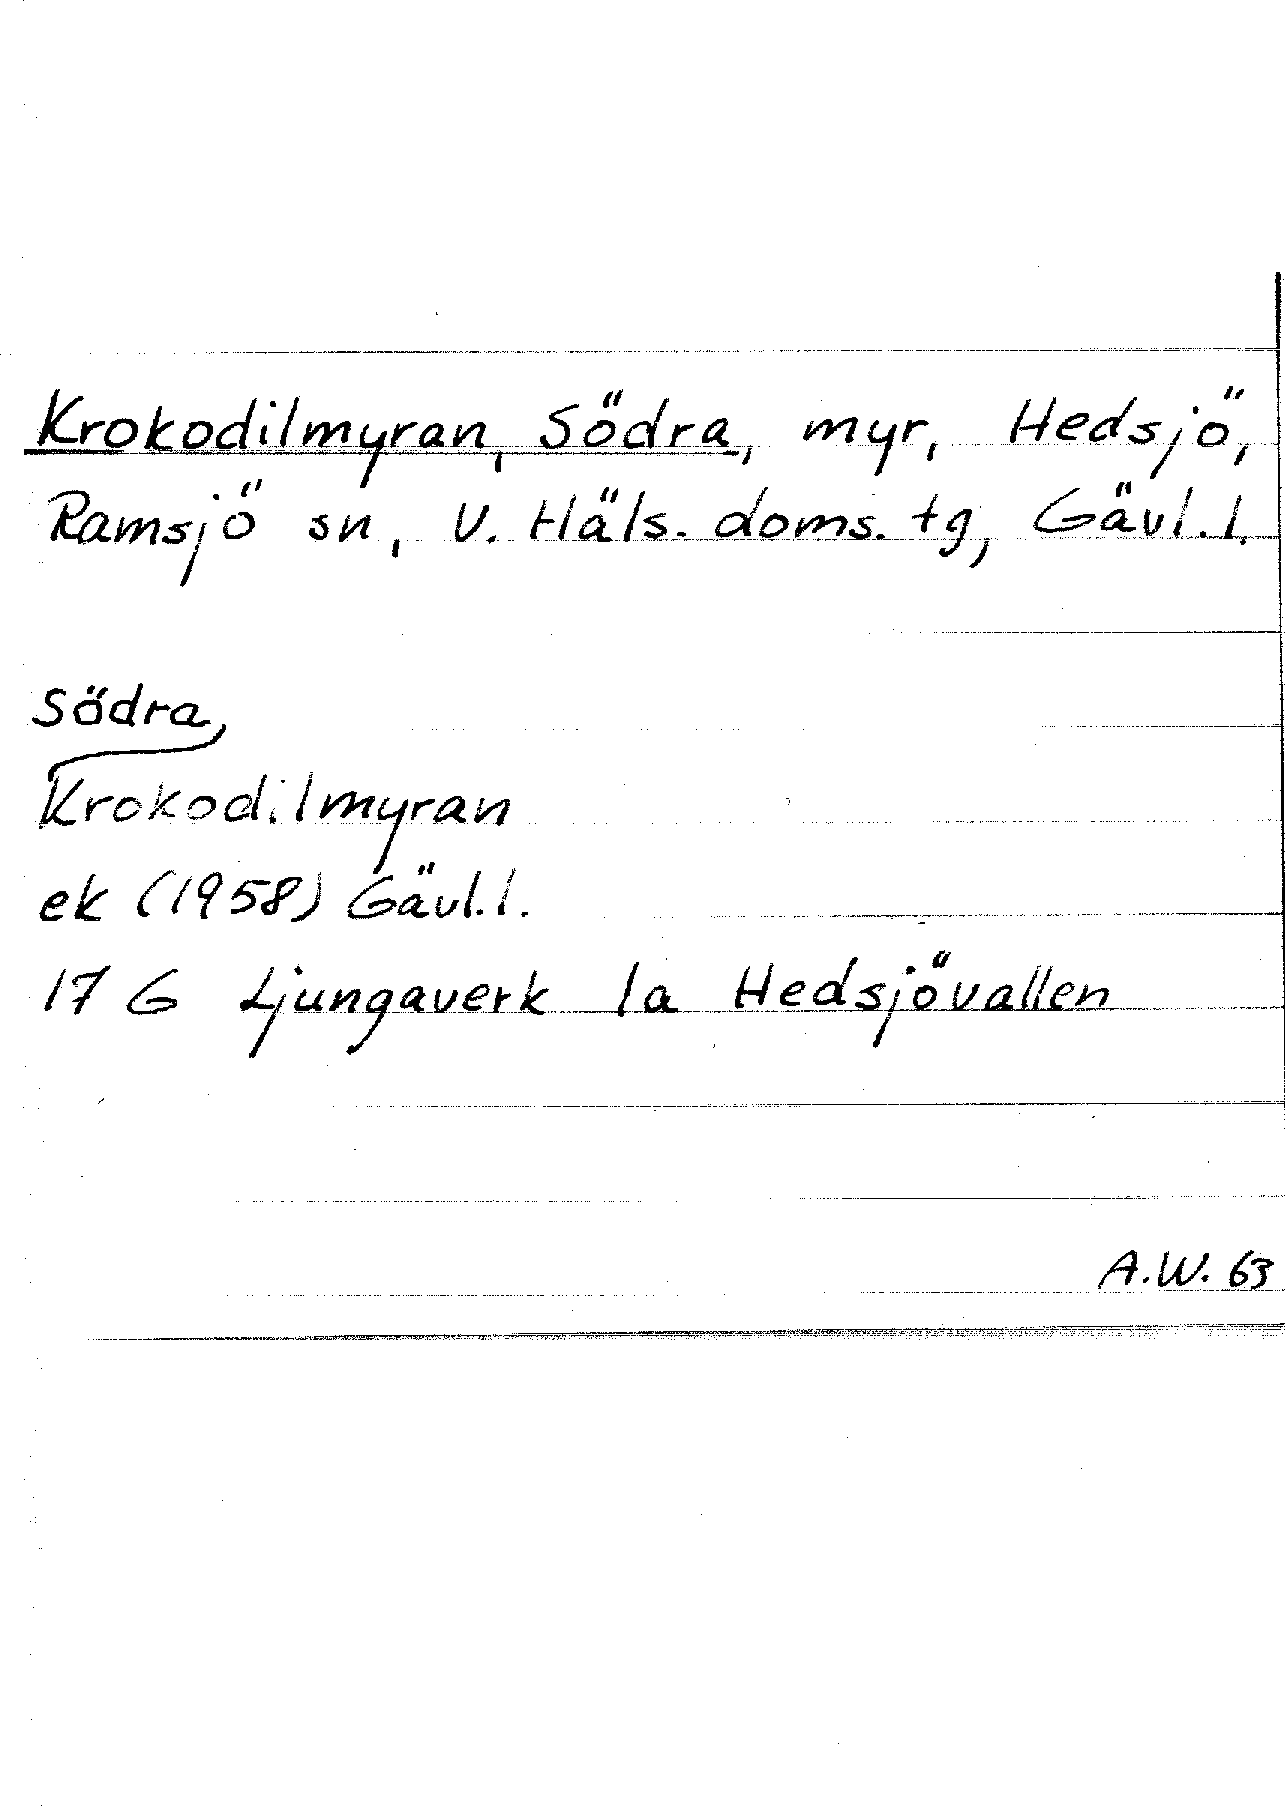 Krokodilmyran, Södra, myr, Hedsjö,
Ramsjö sn, V. Häls. doms. tg, Gävl. l.
Södra,
Krokodilmyran
ek (1958) Gävl. l.
17 G Ljungaverk 1a Hedsjövallen
A.W. 63